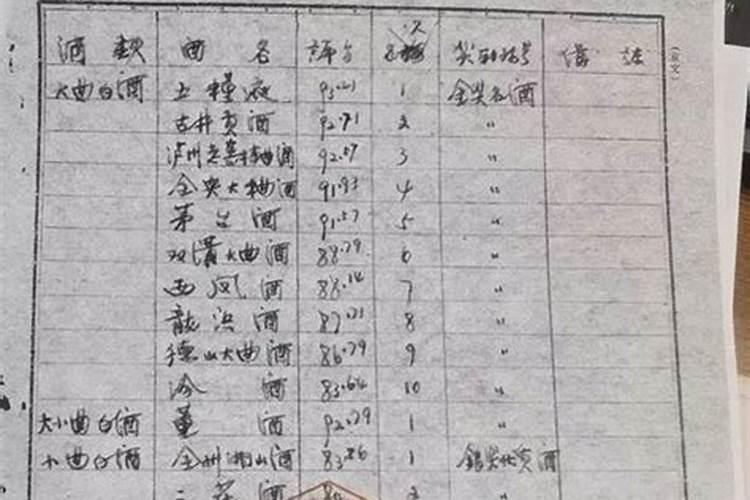 酒类 酒名 评分 名次 奖励称号 备注
大曲白酒 五粮液 1 金奖名酒
古井贡酒 92.71 2 〃
泸州老窖特曲酒 92.57 3 〃
全兴大曲酒 91.93 4 〃
茅台酒 91.57 5 〃
双沟大曲酒 88.79 6 〃
西凤酒 88.14 7 〃
龙滨酒 8 〃
德山大曲酒 86.79 9 〃
汾酒 83.64 10 〃
大小曲白酒 董酒 92.79 1 〃
小曲白酒 全州湘山酒 83.86 1 银奖优质酒
三花酒 2 〃